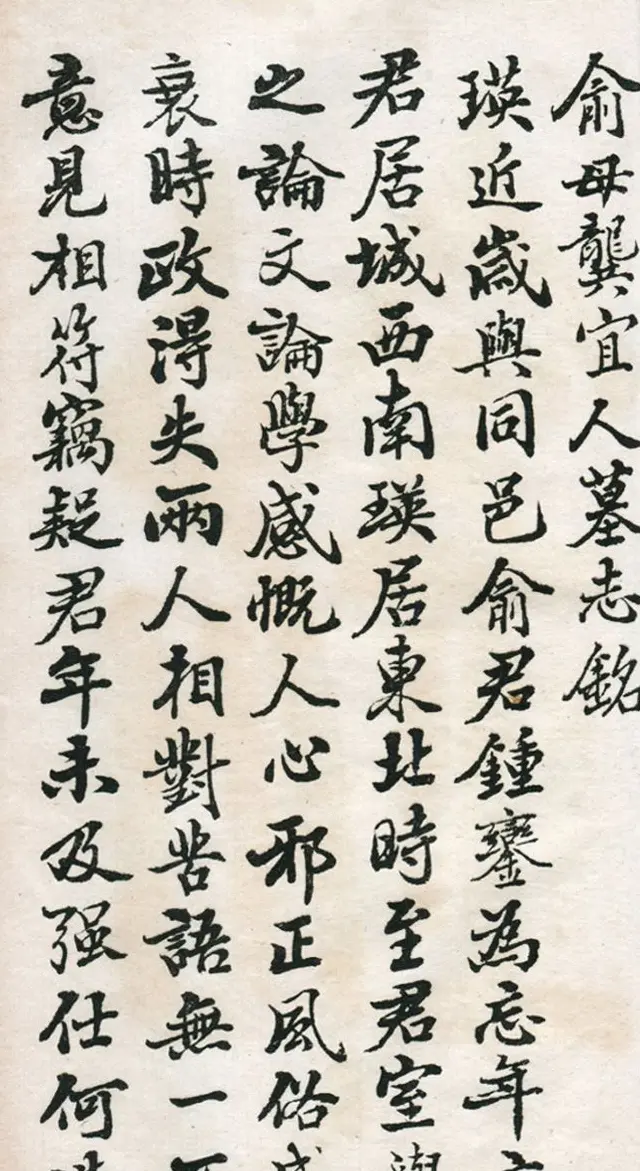 俞母龔宜人墓志銘
瑛近歲與同邑俞君鍾鑾為忘年
君居城西南瑛居東北時至君室與
之論文論學感慨人心邪正風俗盛
衰時政得失兩人相對苦語無一不
意見相符竊疑君年未及强仕何